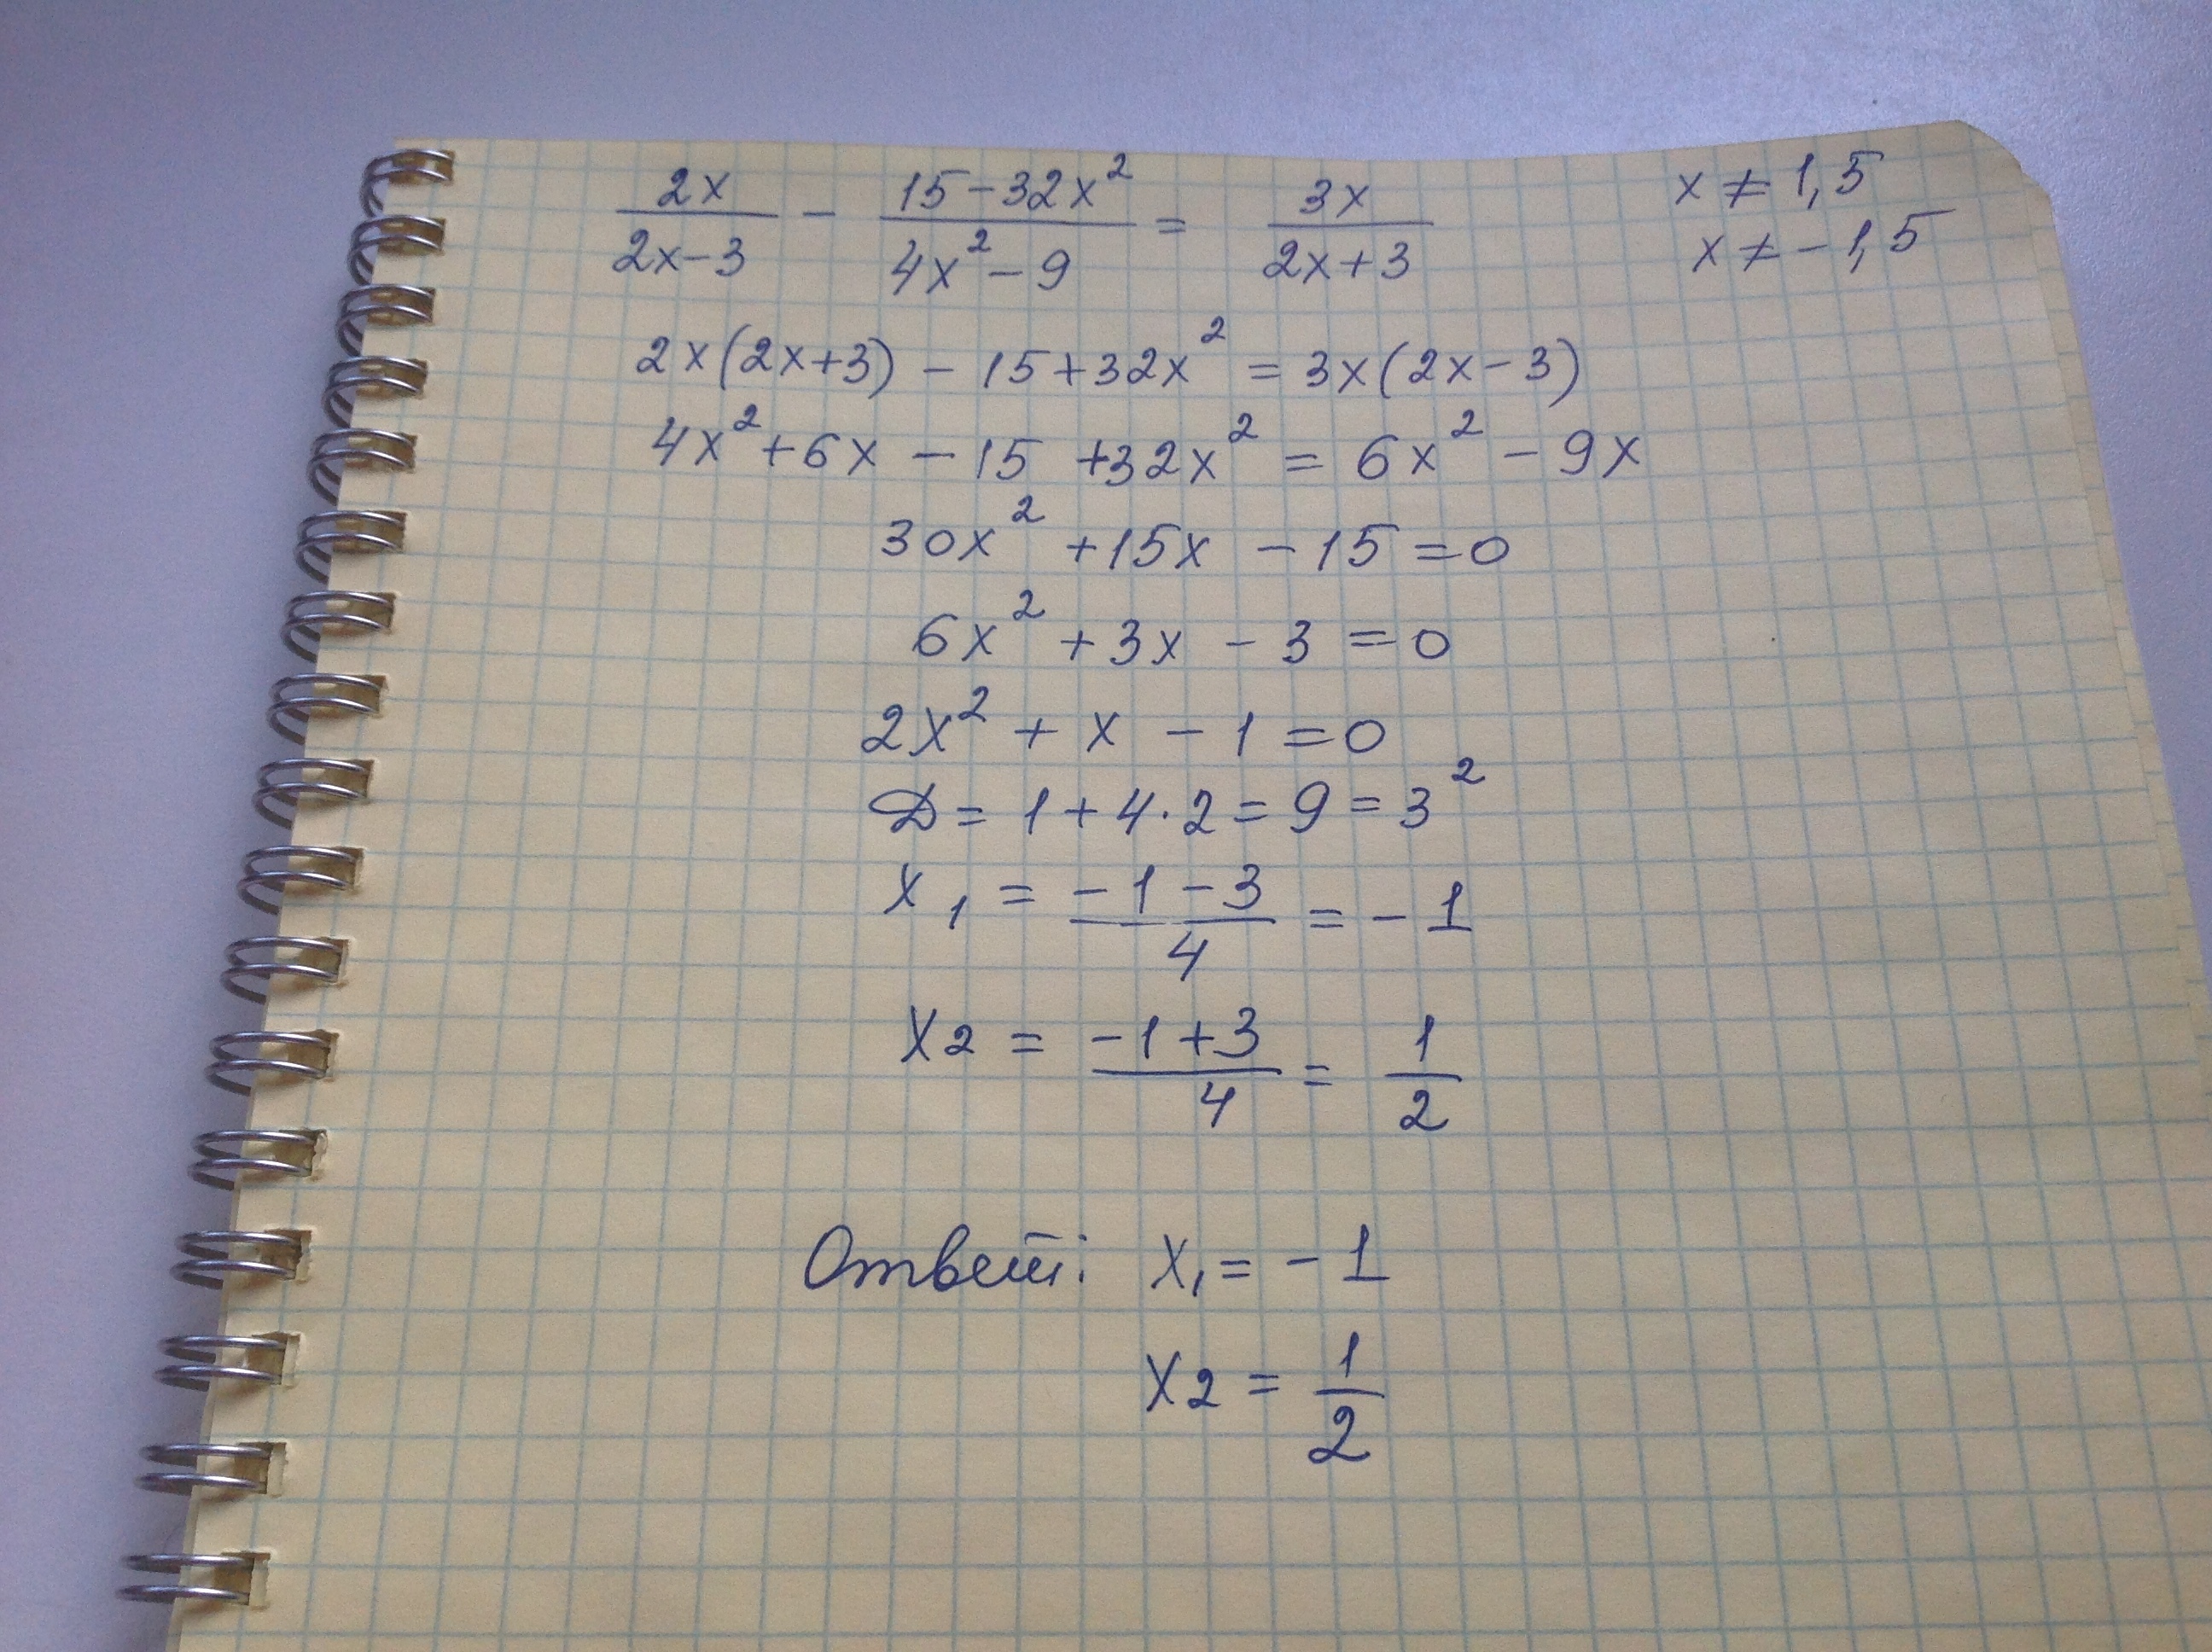 2x/(2x-3) - (15-32x²)/(4x²-9) = 3x/(2x+3) x ≠ 1,5
x ≠ -1,5
2x(2x+3) - 15+32x² = 3x(2x-3)
4x²+6x - 15 +32x² = 6x² - 9x
30x² +15x - 15 = 0
6x² + 3x - 3 = 0
2x² + x - 1 = 0
D = 1 + 4·2 = 9 = 3²
x₁ = (-1-3)/4 = -1
x₂ = (-1+3)/4 = 1/2
Ответ: x₁ = -1
x₂ = 1/2